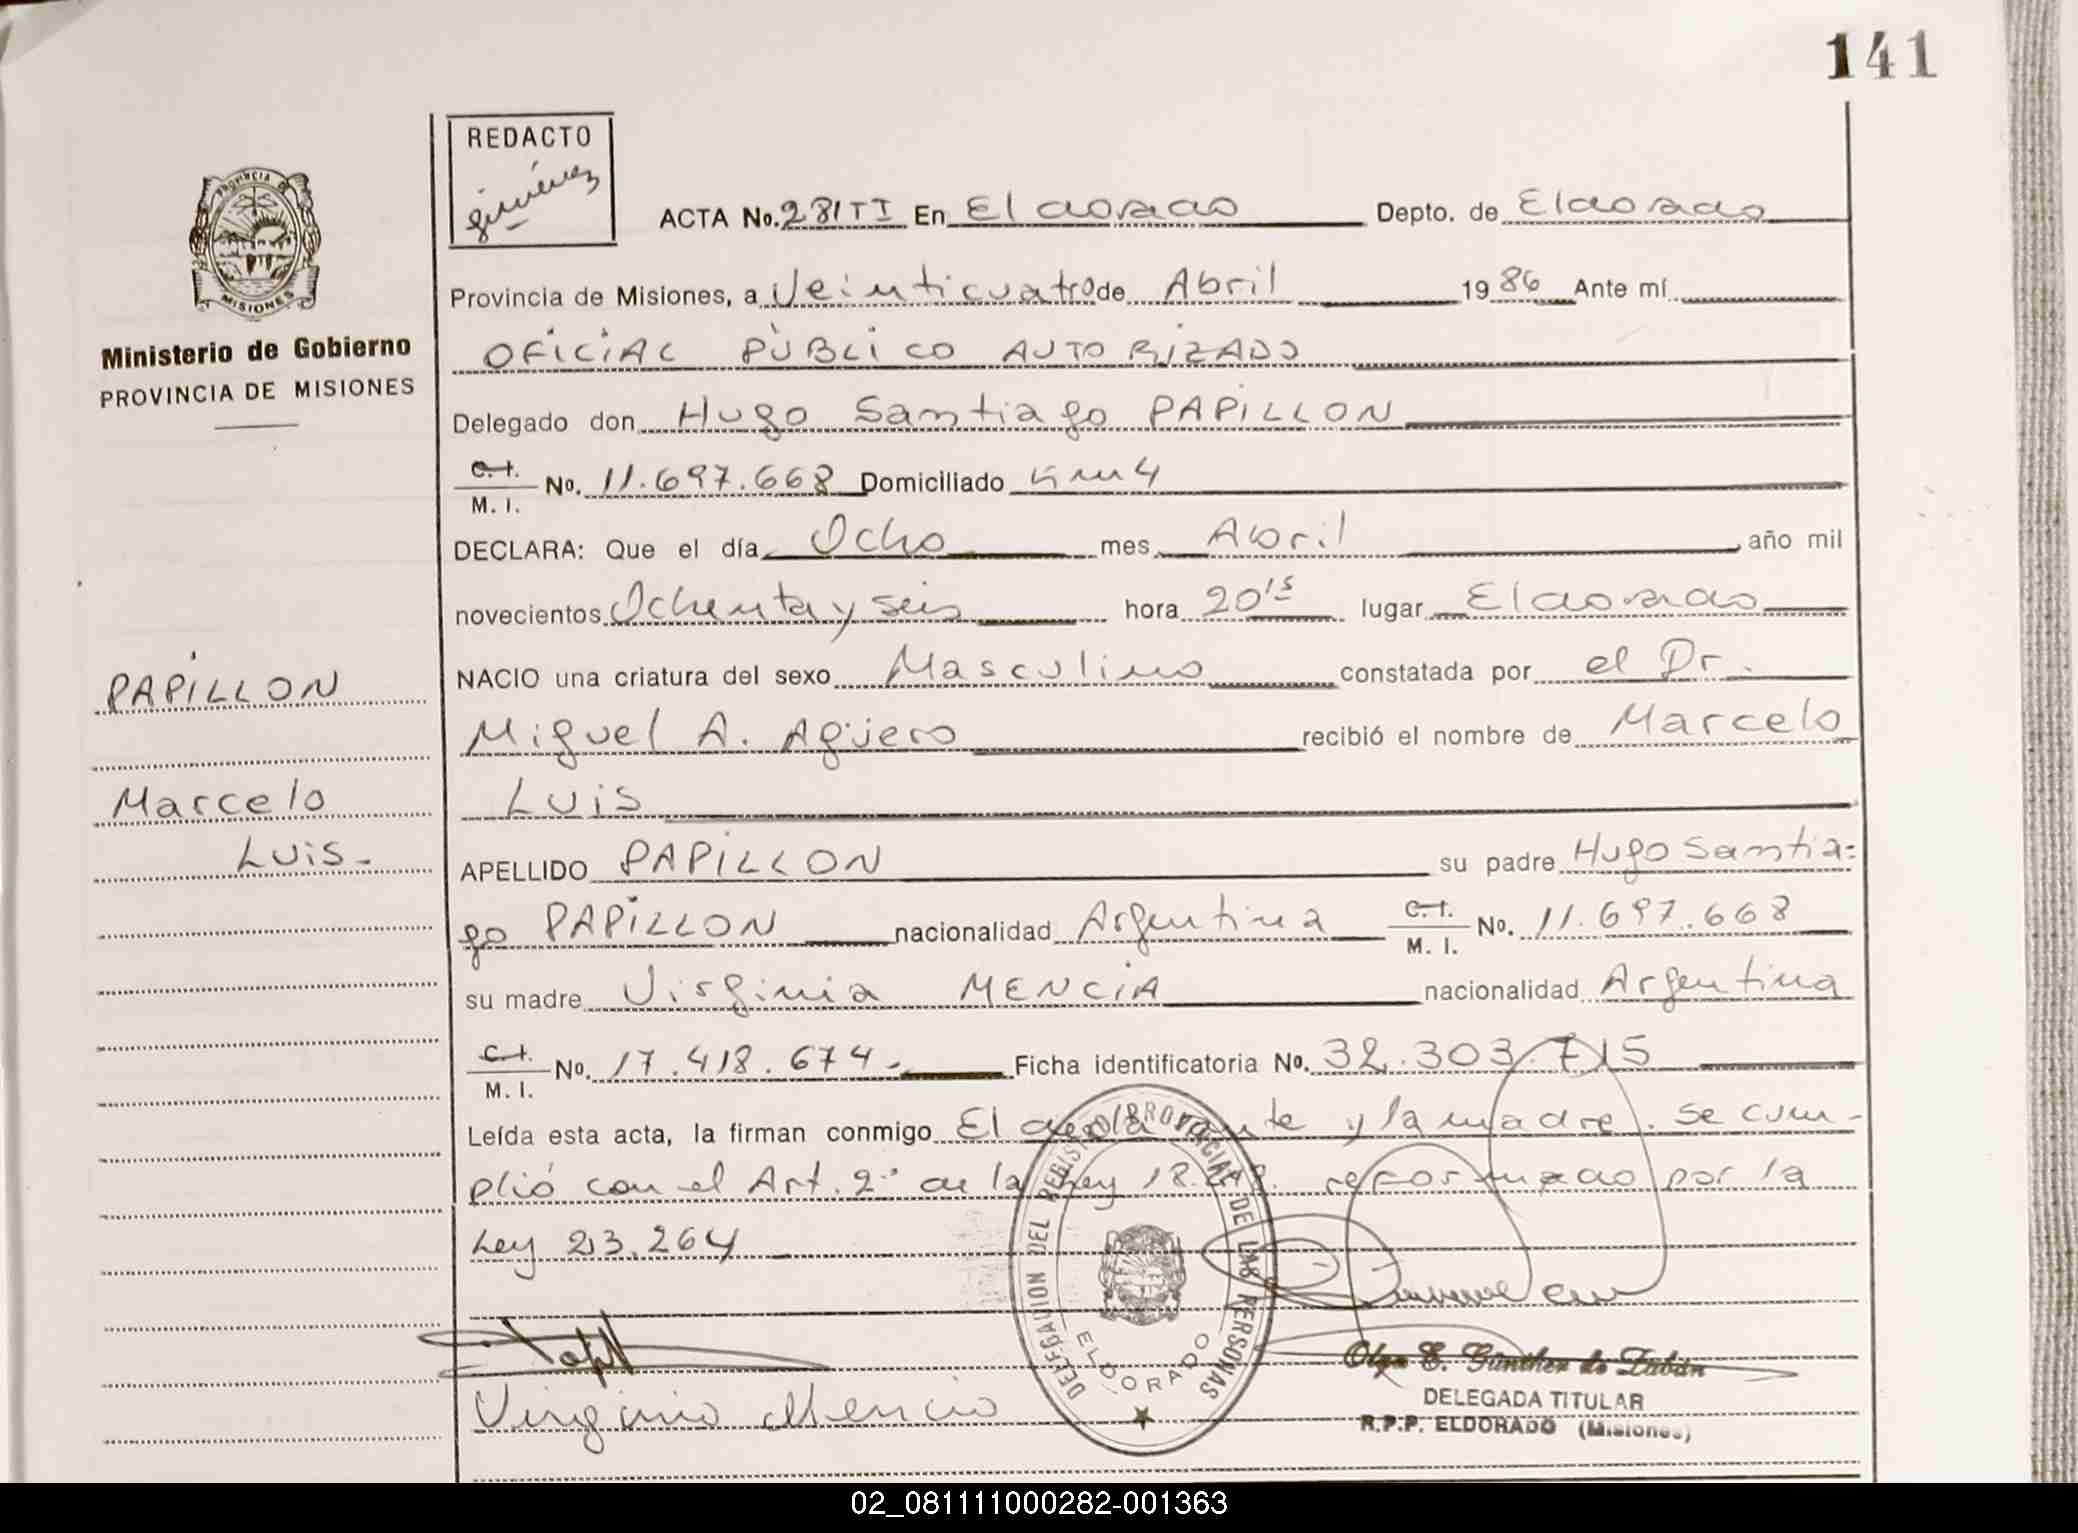 141
REDACTO
Giménez
PROVINCIA DE
MISIONES
Ministerio de Gobierno
PROVINCIA DE MISIONES
ACTA No. 281 TI En Eldorado Depto. de Eldorado
Provincia de Misiones, a Veinticuatro de Abril 1986 Ante mí
OFICIAL PÚBLICO AUTORIZADO
Delegado don Hugo Santiago PAPILLON
C.I.
M. I. No. 11.697.668 Domiciliado Km 4
DECLARA: Que el día Ocho mes Abril año mil
novecientos Ochenta y seis hora 20 15 lugar Eldorado
NACIO una criatura del sexo Masculino constatada por el Dr.
Miguel A. Agüero recibió el nombre de Marcelo
Luis
APELLIDO PAPILLON su padre Hugo Santia=
go PAPILLON nacionalidad Argentina C.I. M. I. No. 11.697.668
su madre Virginia MENCIA nacionalidad Argentina
C.I.
M. I. No. 17.418.674.- Ficha identificatoria No. 32.303.715
Leída esta acta, la firman conmigo El declarante y la madre. Se cum-
plió con el Art. 2º de la Ley reformado por la
Ley 23.264
PAPILLON
Marcelo
Luis.-
DELEGACION DEL REGISTRO PROVINCIAL DE LAS PERSONAS
ELDORADO
Virginia Mencia
Olga E. Günther de Zubán
DELEGADA TITULAR
R.P.P. ELDORADO (Misiones)
02_081111000282-001363